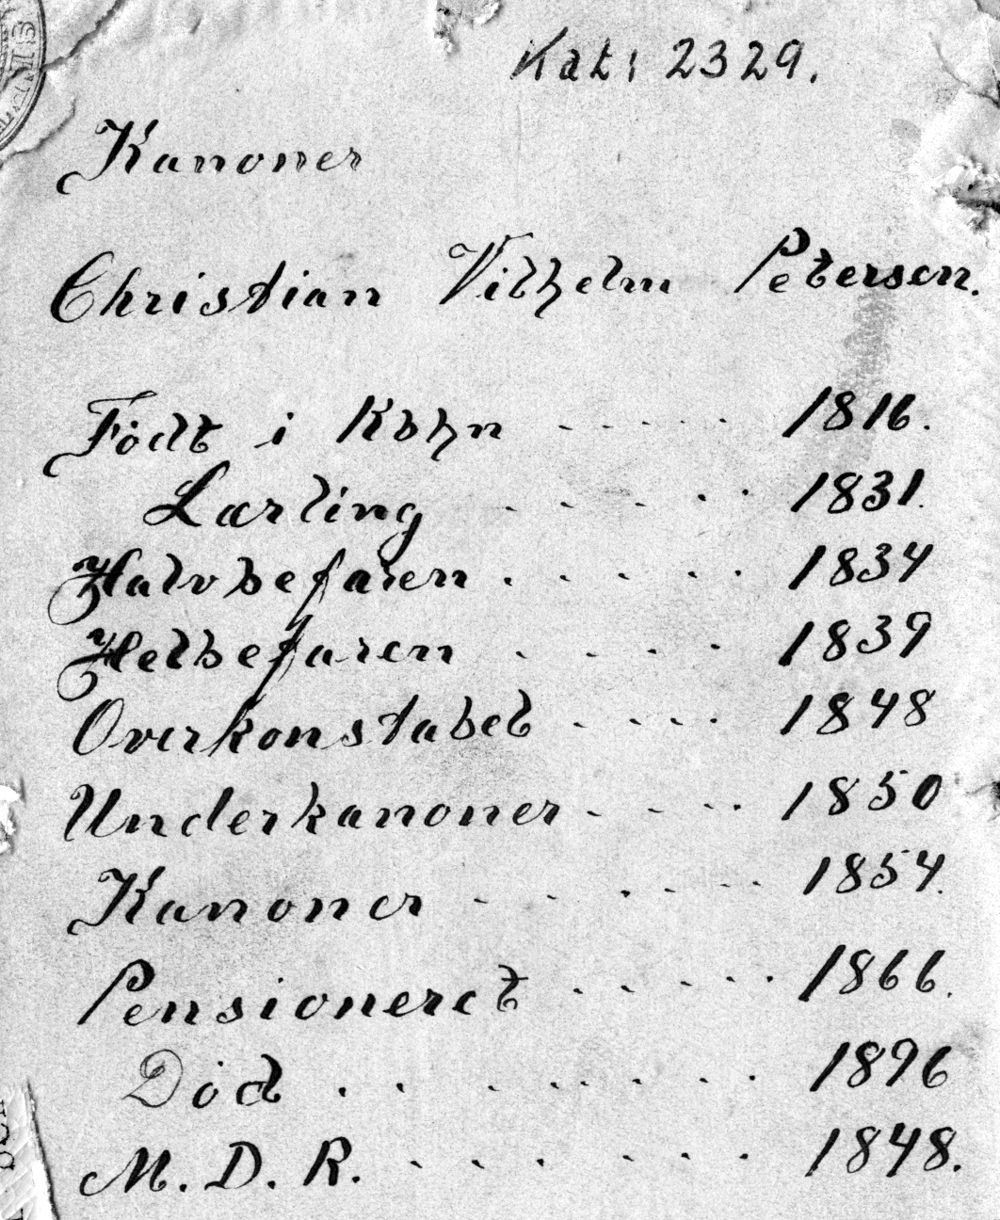 Kat: 2329.
Kanoner
Christian Vilhelm Petersen.
Födt i Kbhn ..... 1816.
Lærling ..... 1831.
Halvbefaren ..... 1834
Helbefaren .... 1839
Overkonstabel .... 1848
Underkanoner .... 1850
Kanoner ..... 1854.
Pensioneret ..... 1866.
Död ....... 1896
M. D. R. ...... 1848.